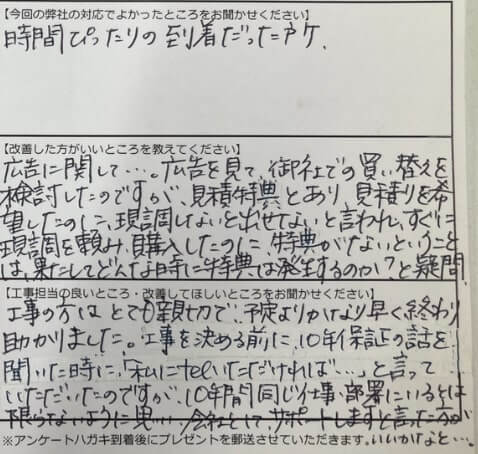 【今回の弊社の対応でよかったところをお聞かせください】
時間ぴったりの到着だった所。
【改善した方がいいところを教えてください】
広告に関して…。広告を見て、御社での買い替えを
検討したのですが、見積特典とあり、見積りを希
望したのに、現調しないと出せないと言われ、すぐに
現調を頼み、購入したのに、特典がないということ
は、果たしてどんな時に特典は発生するのか？と疑問
【工事担当の良いところ・改善してほしいところをお聞かせください】
工事の方はとても親切で、予定よりかなり早く終わり
助かりました。工事を決める前に、10年保証の話を
聞いた時に、「私にtelいただければ…」と言って
いただいたのですが、10年間同じ仕事・部署にいるとは
限らないように思い…会社としてサポートしますと言った方が
※アンケートハガキ到着後にプレゼントを郵送させていただきます。いいかなと…。